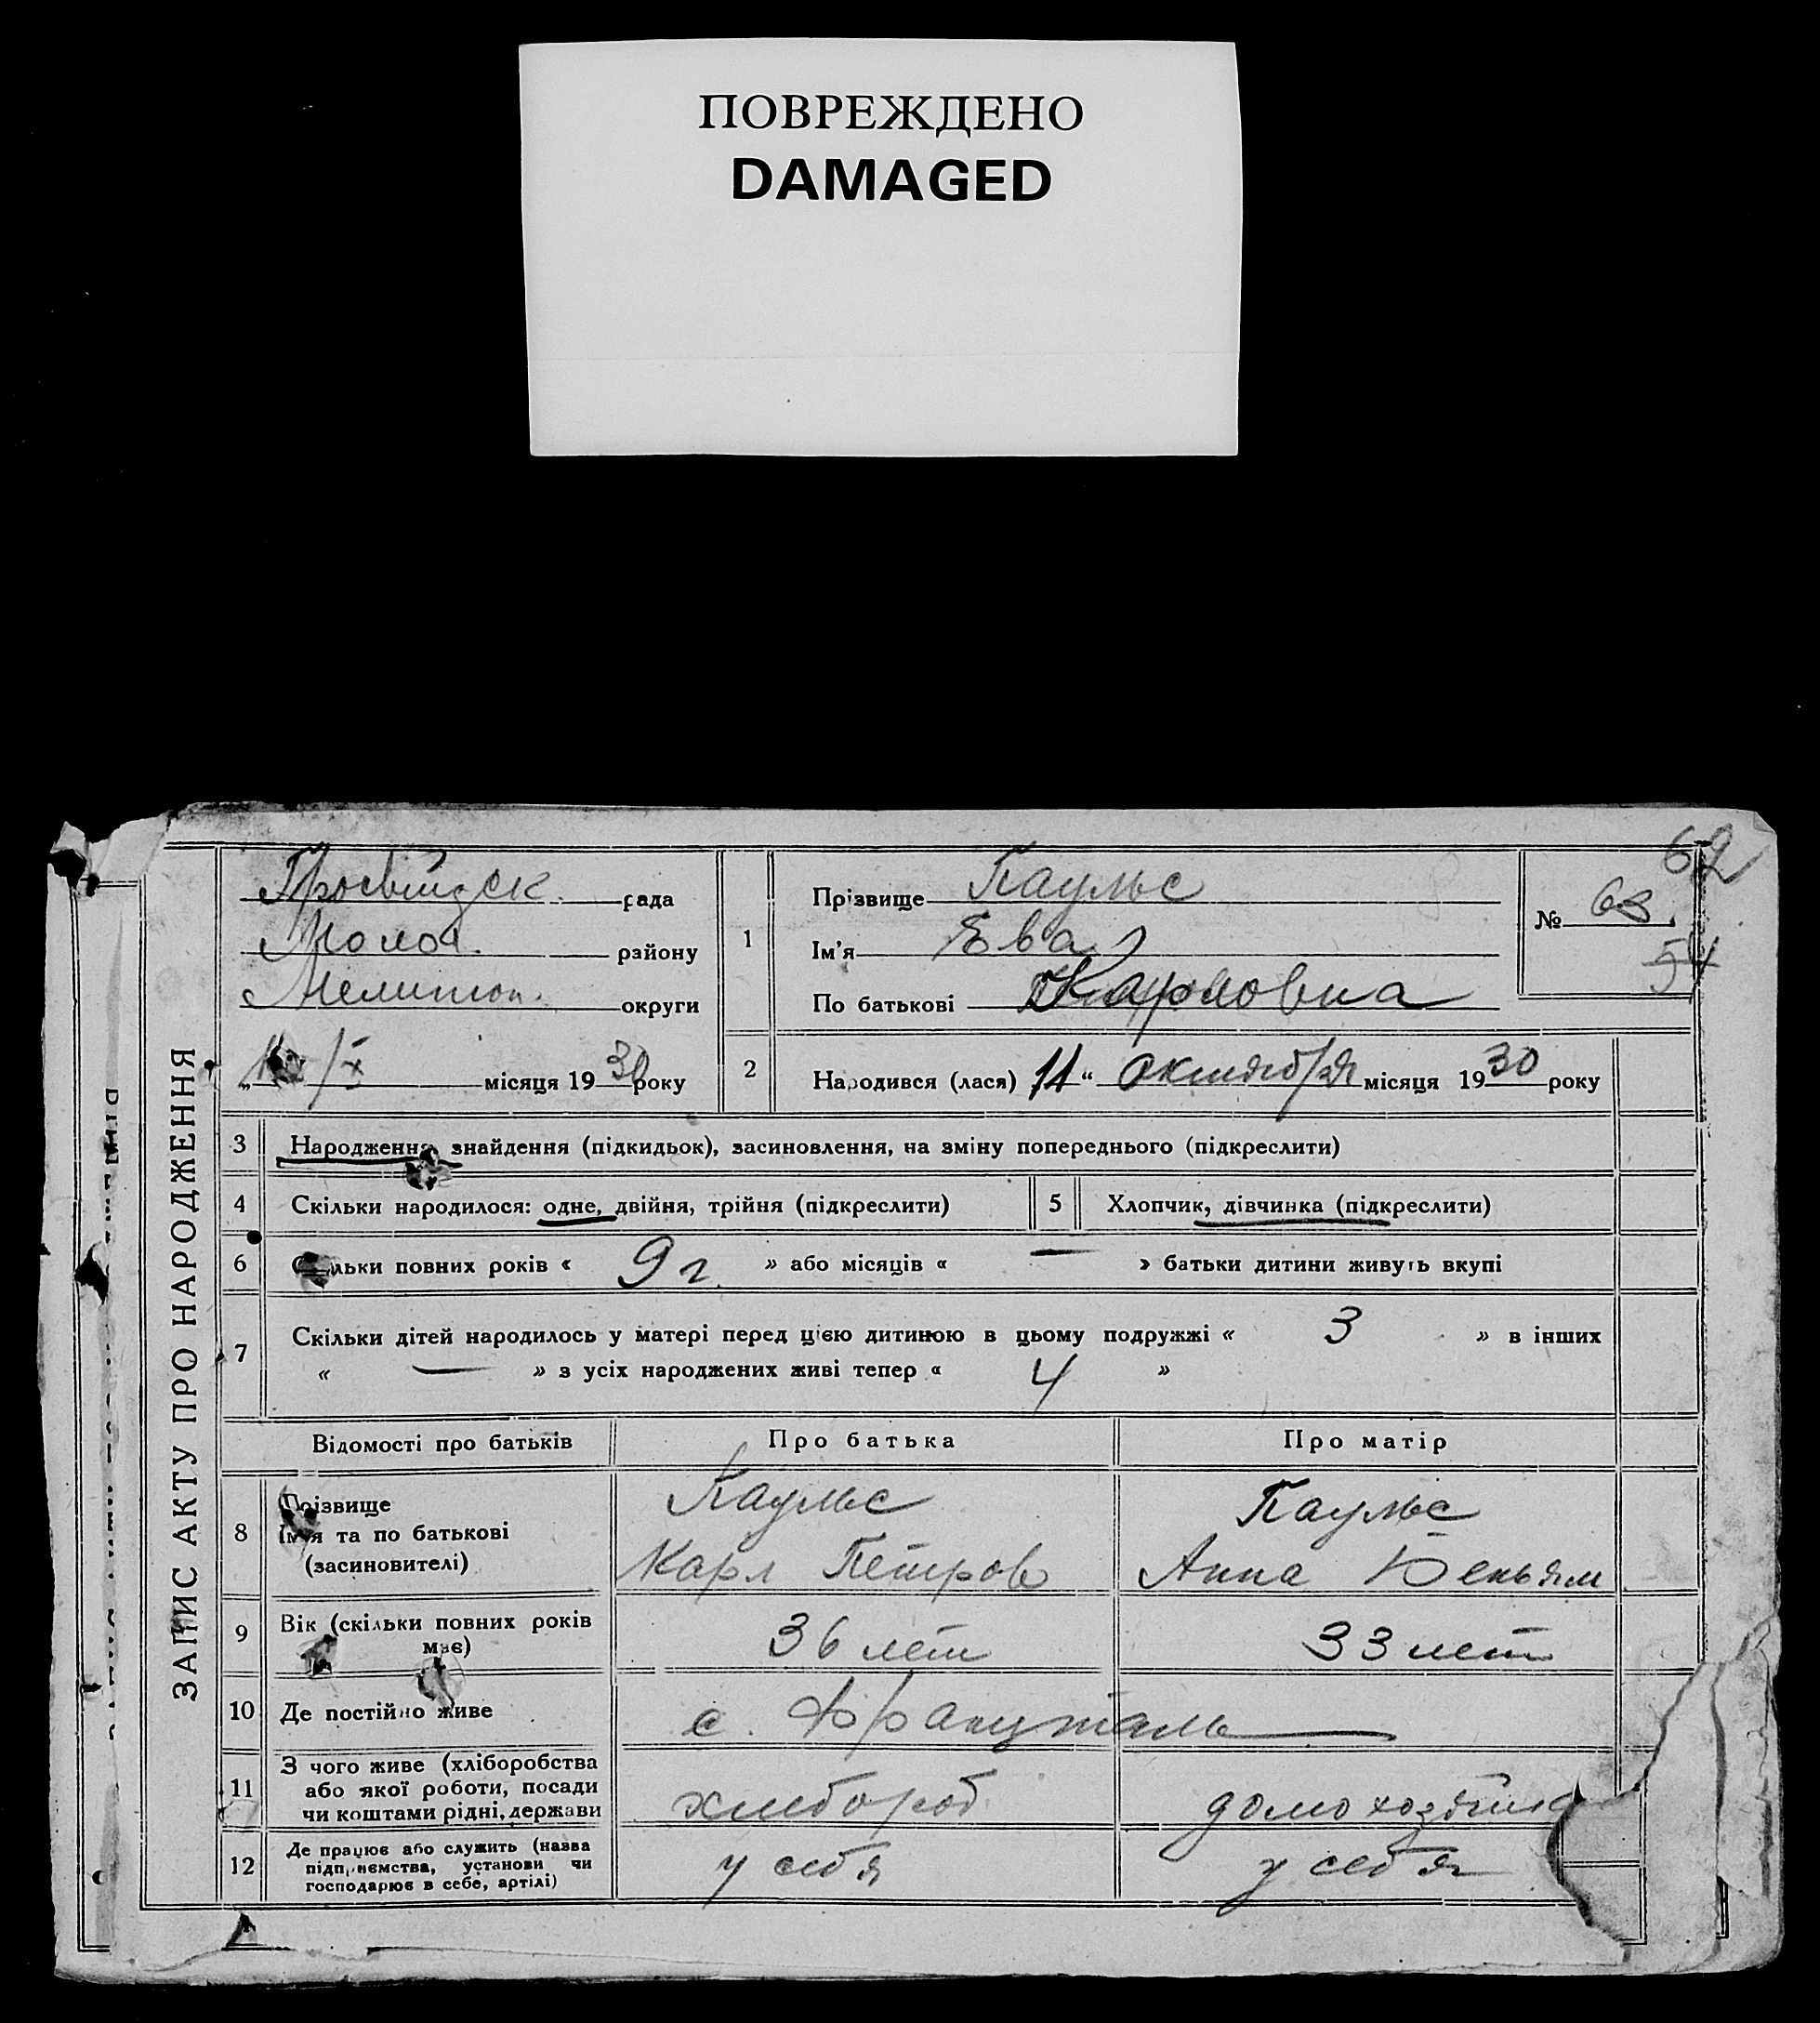 ПОВРЕЖДЕНО
DAMAGED
62
ЗАПИС АКТУ ПРО НАРОДЖЕННЯ
рада
Молоч. району
Мелитоп. округи
/X місяця 1930 року
1
Прізвище Паульс
Ім'я Ева
По батькові Карловна
№ 63
54
2
Народився (лася) 11 “ октября місяця 1930 року
3 Народження, знайдення (підкидьок), засиновлення, на зміну попереднього (підкреслити)
4 Скільки народилося: одне, двійня, трійня (підкреслити) 5 Хлопчик, дівчинка (підкреслити)
6 Скільки повних років « 9 г. » або місяців « — » батьки дитини живуть вкупі
7 Скільки дітей народилось у матері перед цією дитиною в цьому подружжі « 3 » в інших
« — » з усіх народжених живі тепер « 4 »
Відомості про батьків Про батька Про матір
8 Прізвище Паульс Паульс
Ім'я та по батькові Карл Петров Анна
(засиновителі)
9 Вік (скільки повних років має) 36 лет 33 лет
10 Де постійно живе с.
11 З чого живе (хліборобства
або якої роботи, посади
чи коштами рідні, держави хлебороб
12 Де працює або служить (назва
підприємства, установи чи
господарює в себе, артілі) у себя у себя